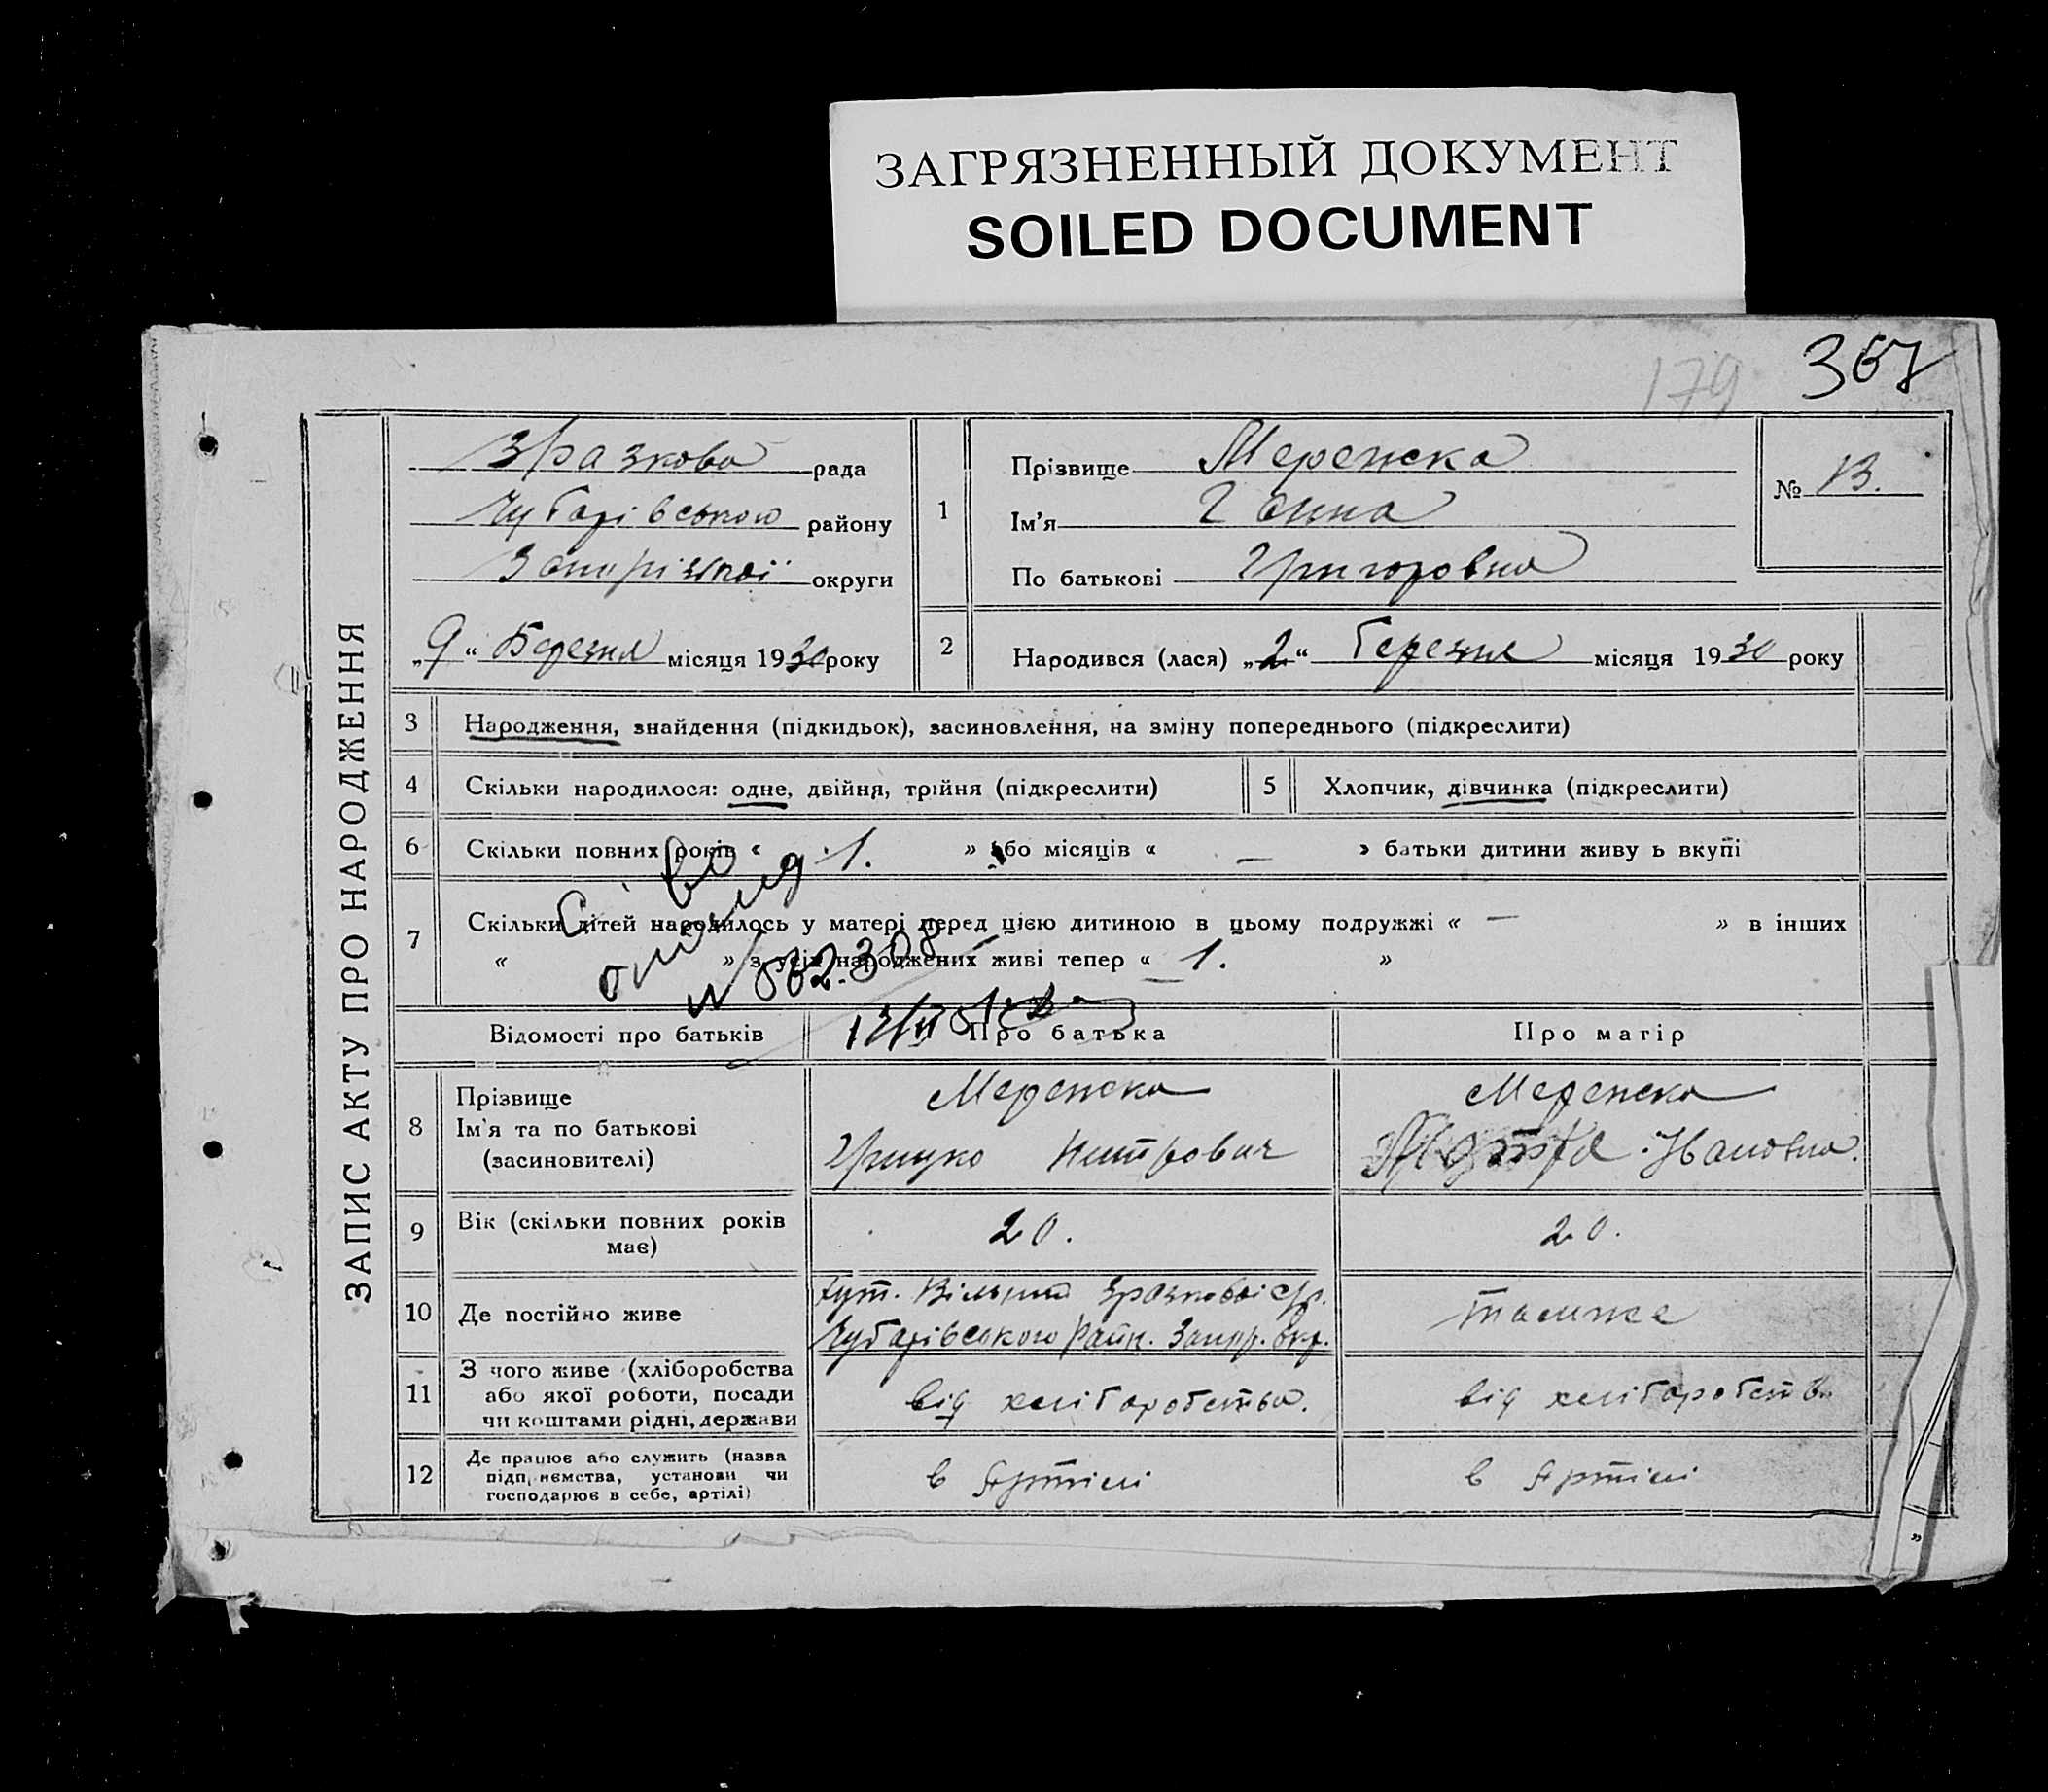 ЗАГРЯЗНЕННЫЙ ДОКУМЕНТ
SOILED DOCUMENT
179
367
ЗАПИС АКТУ ПРО НАРОДЖЕННЯ
Зразкова рада
Чубарівського району
Запоріжської округи
„9“ Березня місяця 1930 року
1
Прізвище Мережка
Ім'я Ганна
По батькові Григоровна
№ 13.
2
Народився (лася) „2“ березня місяця 1930 року
3 Народження, знайдення (підкидьок), засиновлення, на зміну попереднього (підкреслити)
4 Скільки народилося: одне, двійня, трійня (підкреслити)
5 Хлопчик, дівчинка (підкреслити)
6 Скільки повних років « 1. » або місяців « — » батьки дитини живу ь вкупі
7 Скільки дітей народилось у матері перед цією дитиною в цьому подружжі « — » в інших
« — » з усіх народжених живі тепер « 1. »
Відомості про батьків
Про батька
Про матір
8 Прізвище
Ім'я та по батькові
(засиновителі)
Мережка
Грицко
Мережка
Івановна.
9 Вік (скільки повних років
має)
20.
20.
10 Де постійно живе
хут. Вільний Зразкової с/р.
Чубарівського Райн. Запор. окр.
также
11 З чого живе (хліборобства
або якої роботи, посади
чи коштами рідні, держави
від хліборобства.
від хліборобств
12 Де працює або служить (назва
підприємства, установи чи
господарює в себе, артілі)
в Артілі
в Артілі